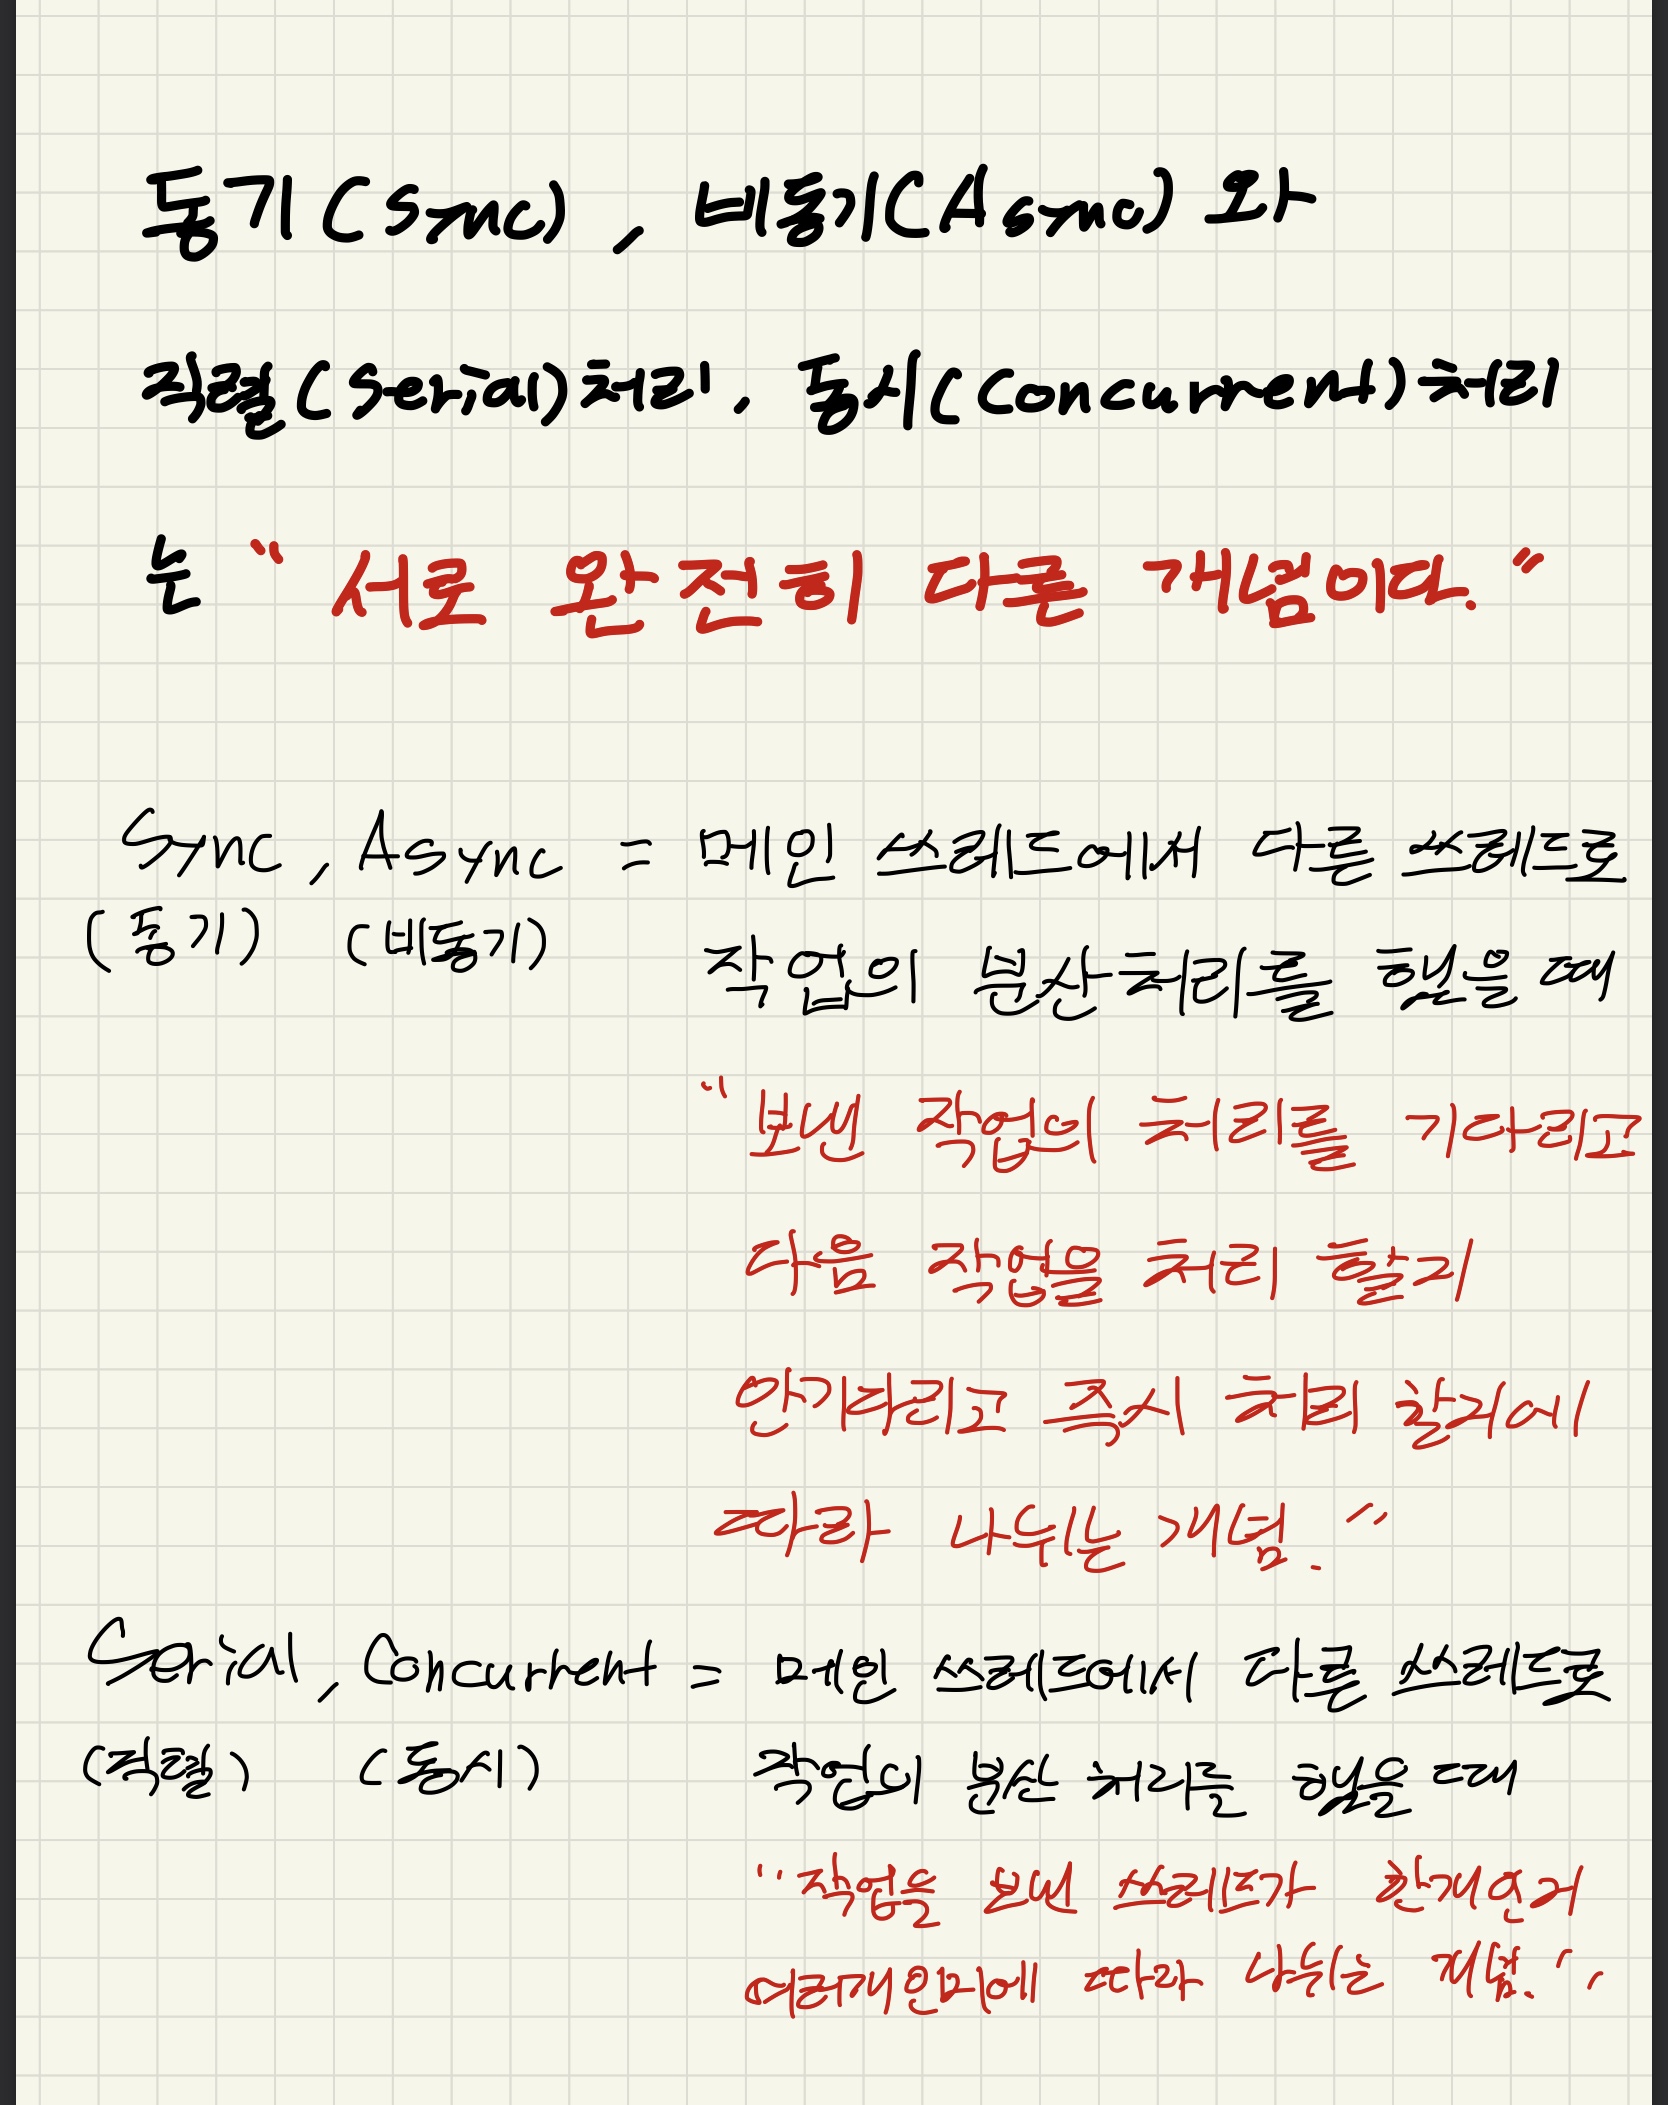 동기(Sync), 비동기(Async) 와
직렬(Serial)처리, 동시(Concurrent)처리
는 "서로 완전히 다른 개념이다."
Sync, Async = 메인 쓰레드에서 다른 쓰레드로
(동기) (비동기) 작업의 분산처리를 했을 때
"보낸 작업의 처리를 기다리고
다음 작업을 처리 할지
안기다리고 즉시 처리 할지에
따라 나뉘는 개념."
Serial, Concurrent = 메인 쓰레드에서 다른 쓰레드로
(직렬) (동시) 작업의 분산 처리를 했을 때
"작업을 보낸 쓰레드가 한개인지
여러개인지에 따라 나뉘는 개념."